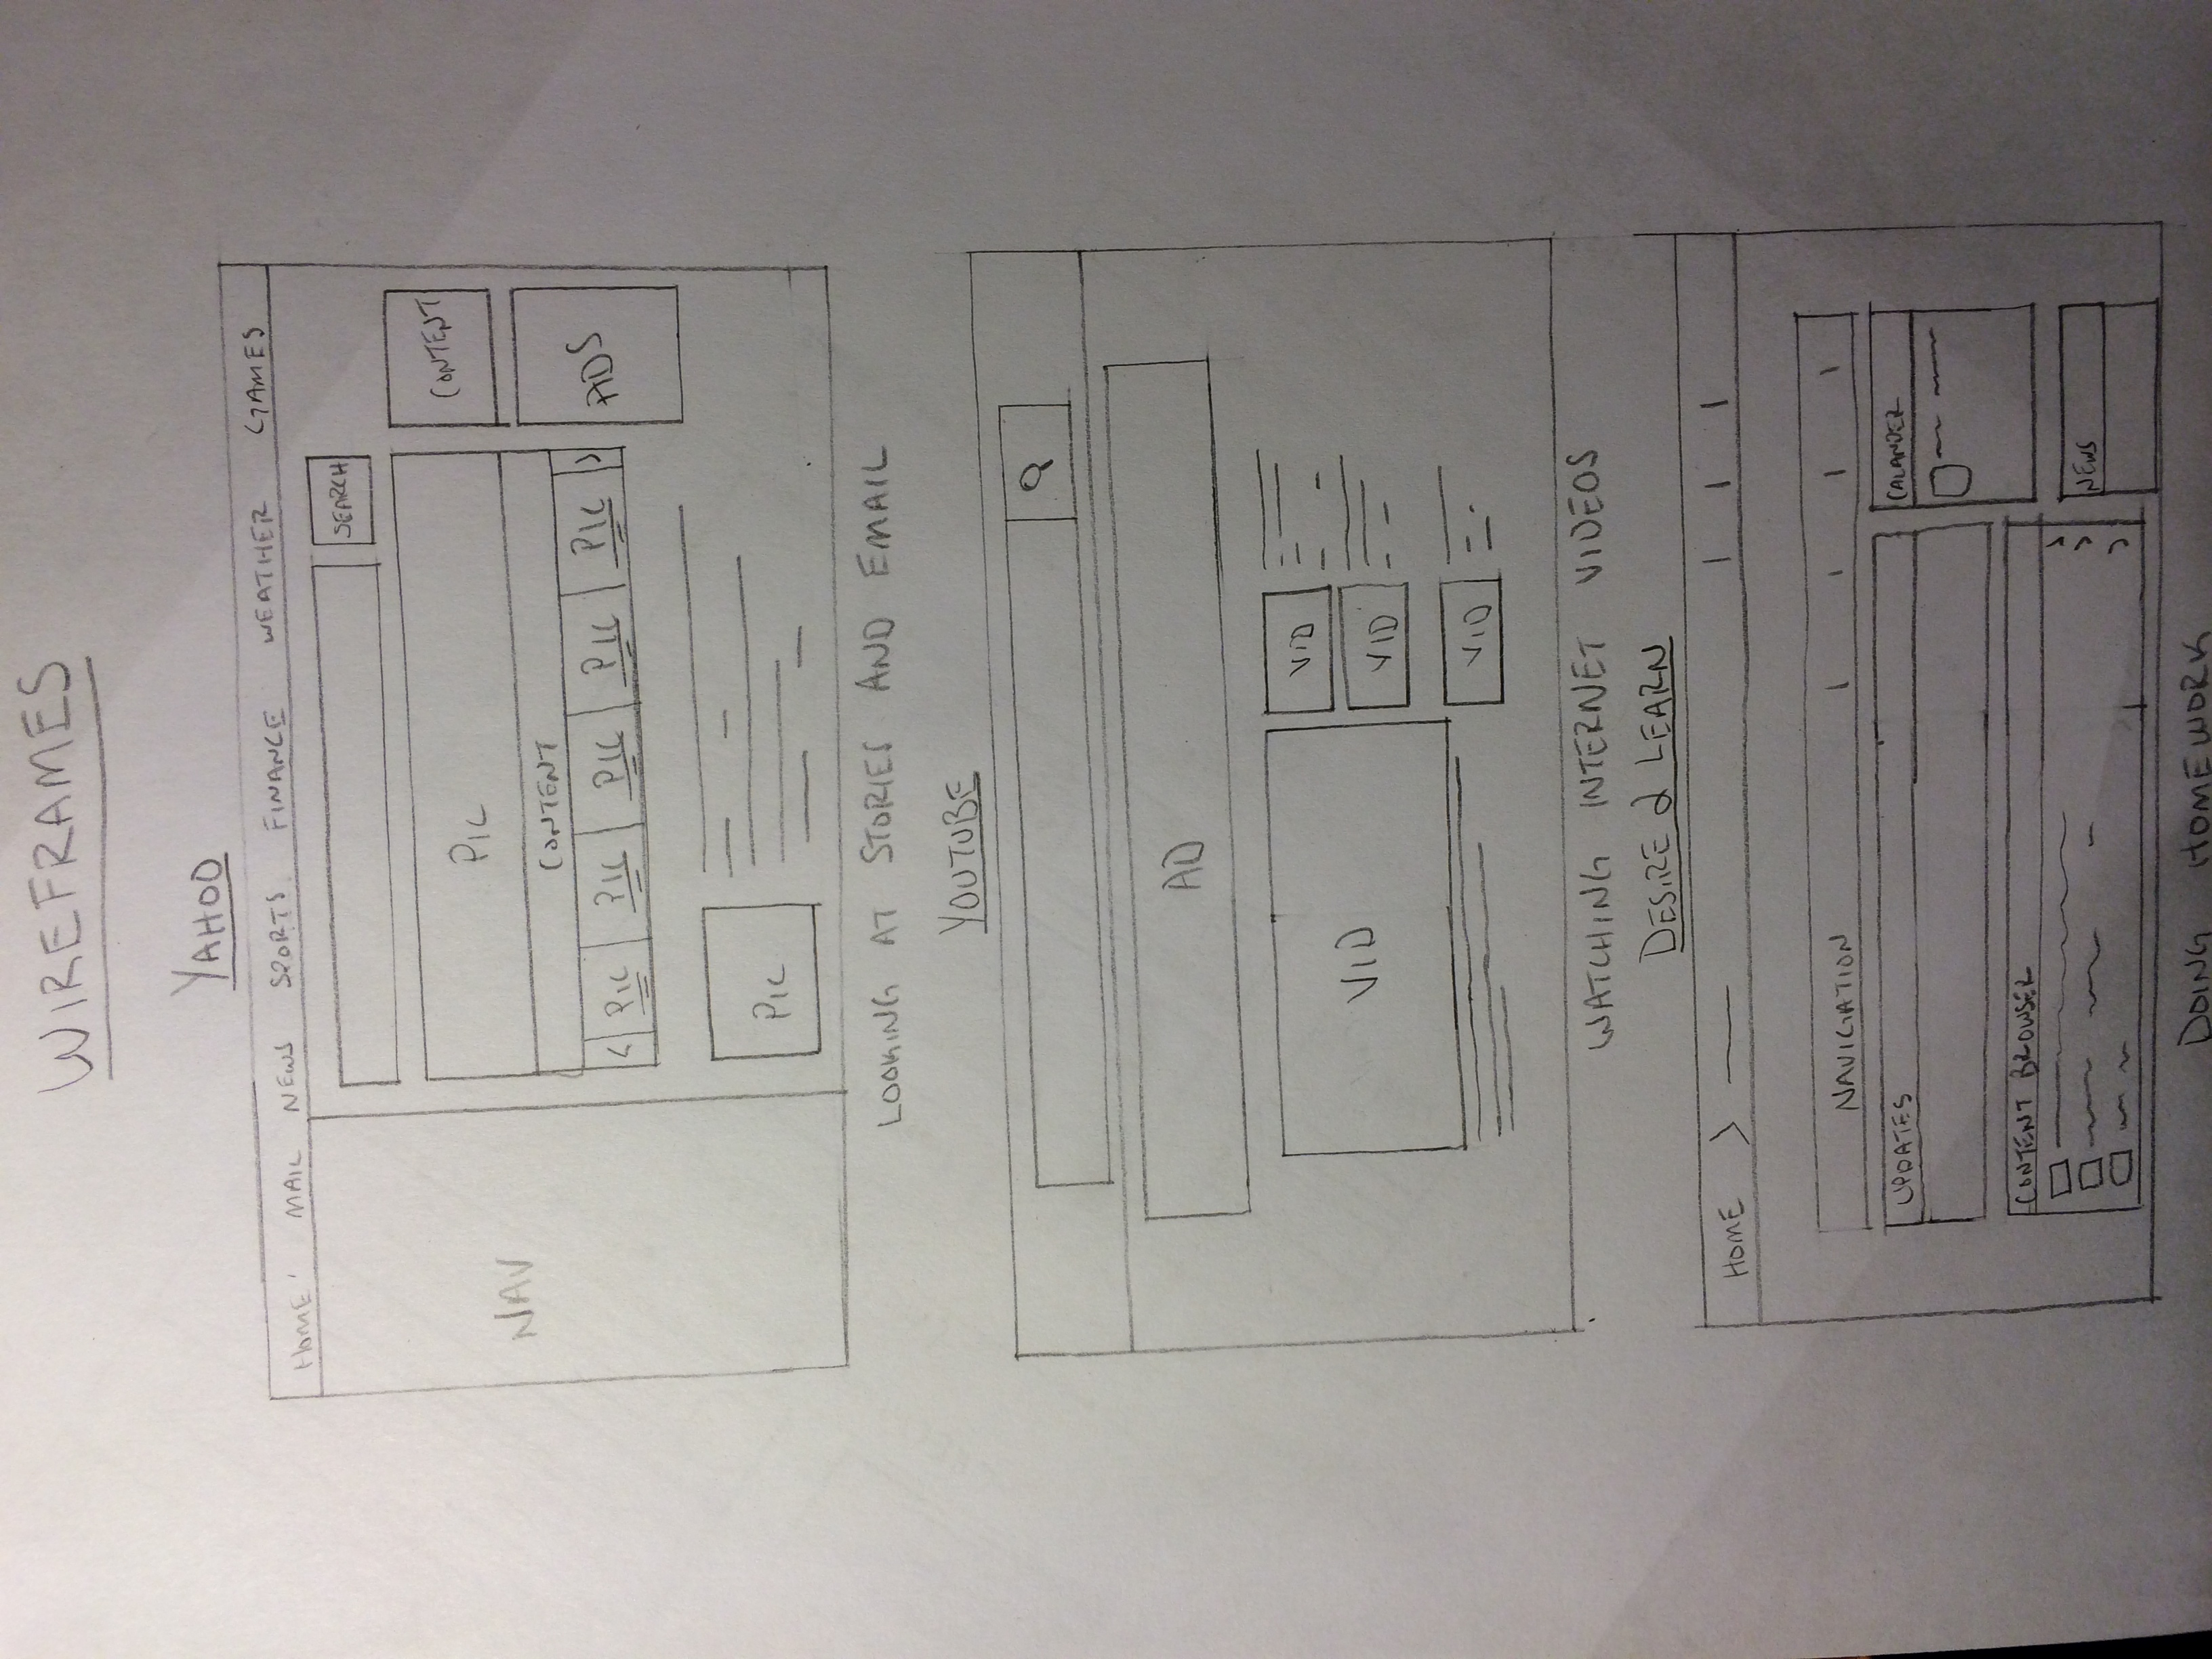 WIREFRAMES
YAHOO
HOME MAIL NEWS SPORTS FINANCE WEATHER GAMES
SEARCH
NAV
PIC
CONTENT
CONTENT
< PIC PIC PIC PIC PIC >
ADS
PIC
LOOKING AT STORIES AND EMAIL
YOUTUBE
AD
VID
VID
VID
VID
WATCHING INTERNET VIDEOS
DESIRE 2 LEARN
HOME >
NAVIGATION
UPDATES
CALANDER
CONTENT BROWSER
NEWS
DOING HOMEWORK